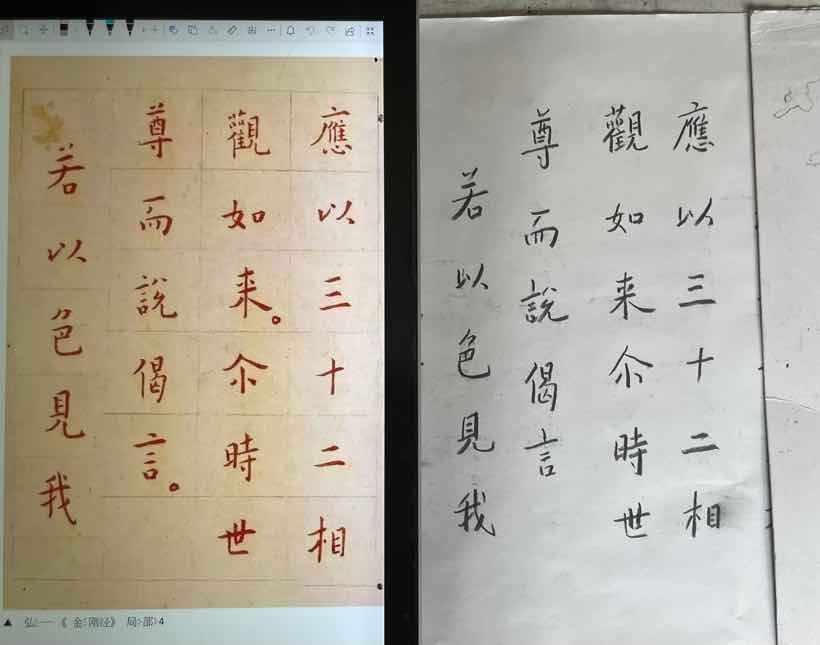 應以三十二相
觀如来。尒時世
尊而說偈言。
若以色見我
▲ 弘一《金刚经》局部4
應以三十二相
觀如来尒時世
尊而說偈言
若以色見我